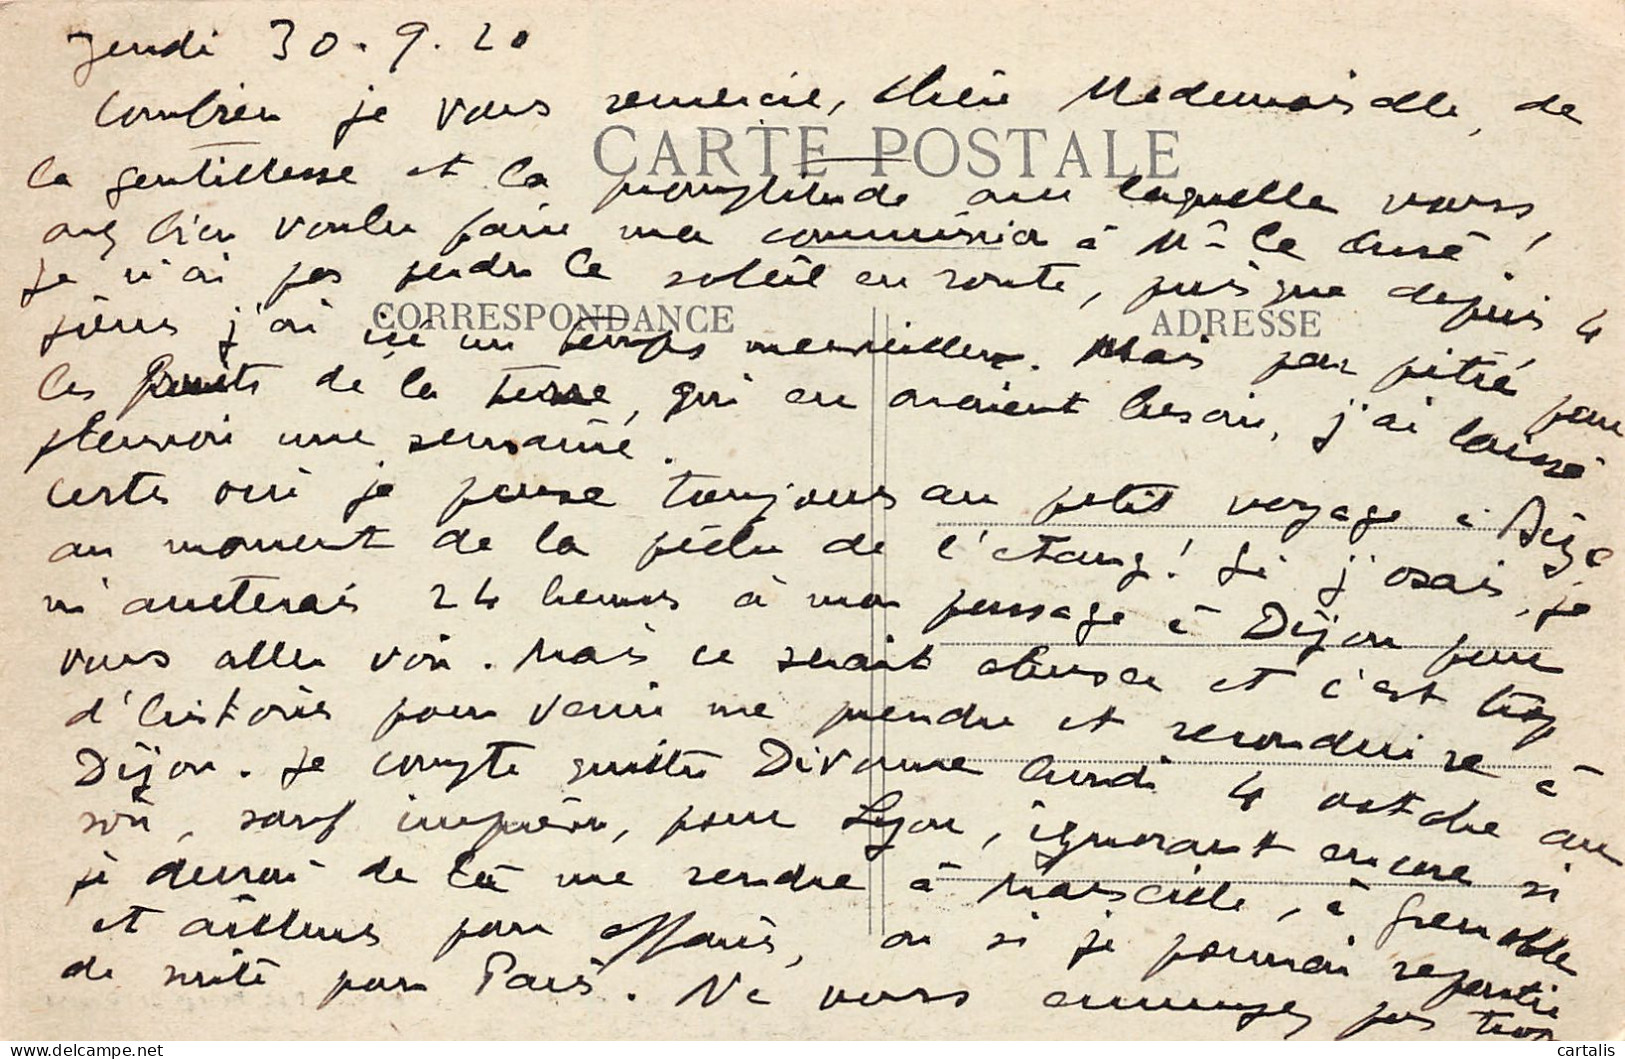 Jeudi 30.9.20
Combien je vous remercie, chère Mademoiselle, de
CARTE POSTALE
la gentillesse et la promptitude avec laquelle vous
avez bien voulu faire ma commission à Mr le Curé !
Je n'ai pas perdu le soleil en route, puisque depuis 4
CORRESPONDANCE
ADRESSE
jours j'ai ici un temps merveilleux. Mais par pitié pour
les fruits de la terre, qui en avaient besoin, j'ai laissé
pleuvoir une semaine.
Certes oui je pense toujours au petit voyage à
au moment de la pêche de l'étang ! Si j'osais, je
m'arrêterais 24 heures à mon passage à Dijon pour
vous aller voir. Mais ce serait abuser et c'est trop
d'histoires pour venir me prendre et reconduire à
Dijon. Je compte quitter Divonne lundi 4 octobre au
soir, sauf imprévu, pour Lyon, ignorant encore si
je devrai de là me rendre à Marseille, à Grenoble
et ailleurs pour affaires, ou si je pourrai repartir
de suite pour Paris. Ne vous ennuyez pas trop
cartalis